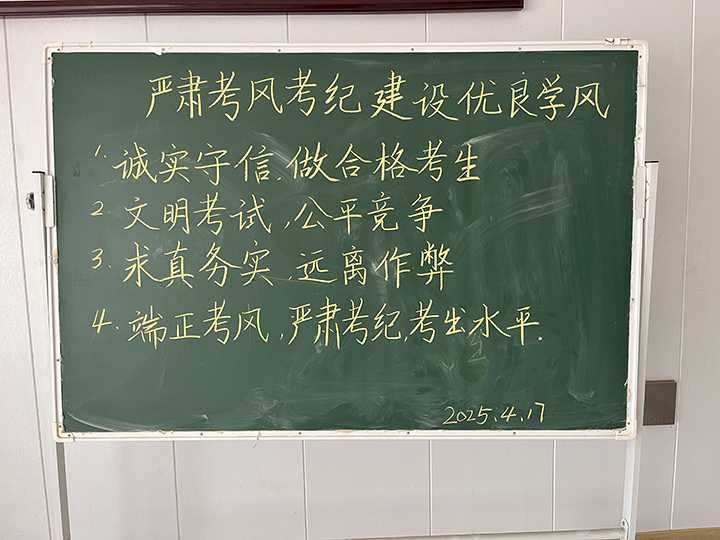 严肃考风考纪建设优良学风
1. 诚实守信,做合格考生
2. 文明考试,公平竞争
3. 求真务实,远离作弊
4. 端正考风,严肃考纪,考出水平.
2025.4.17